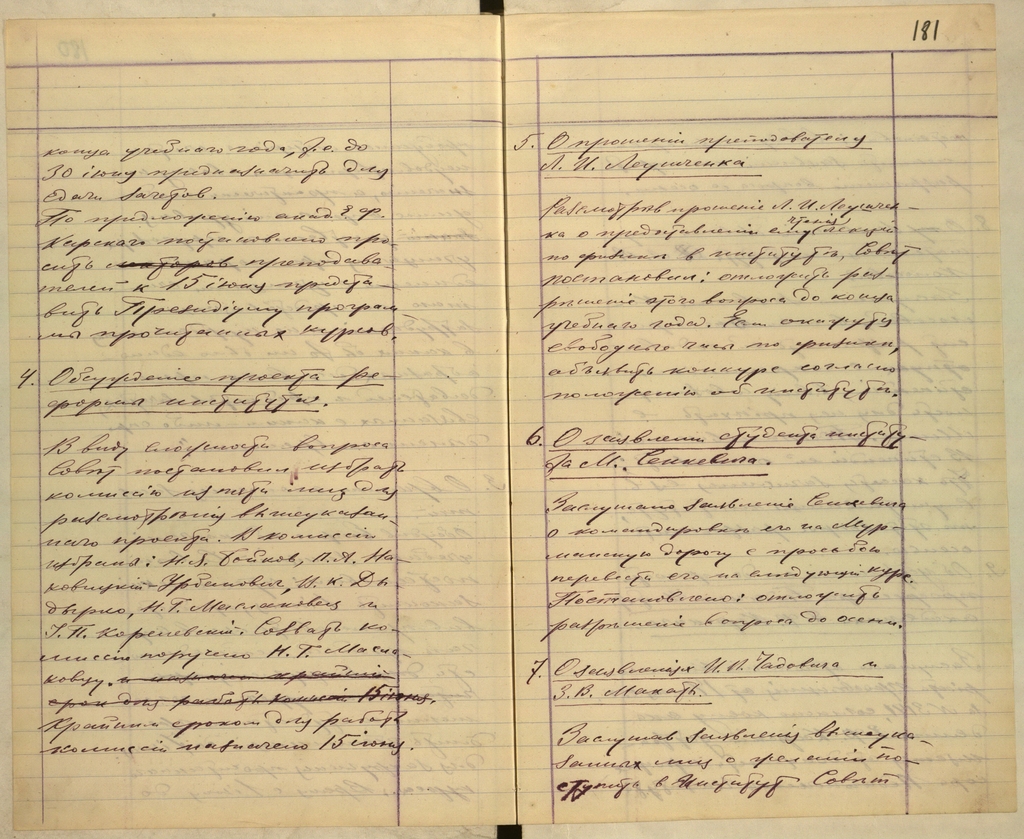 конца учебнаго года, т.е. до
30 іюня предназначить для
сдачи зачетов.
По предложенію акад. Е. Ф.
Карскаго постановлено про-
сить лекторов преподава-
телей к 15 іюня предста-
вить Президіуму програм
мы прочитанных курсов.
4. Обсужденіе проекта ре-
формы института.
В виду сложности вопроса
Совѣт постановил избрать
комиссію из пяти лиц для
разсмотрѣнія вышеуказан-
наго проекта. В комиссію
избраны: Н.Я. Бойков, П.А. Ма-
ковицкій-Урбанович, И. К. Ды-
дырко, Н.Г. Маслаковец и
І.П. Корелевскій. Созвать ко-
миссію поручено Н.Г. Масла-
ковцу. и назначен крайній
срок для работы комисіи 15 іюня.
Крайним сроком для работы
комиссіи назначено 15 іюня.
181
5. О прошеніи преподователя
Л. И. Леушченка
Разсмотрѣв прошеніе Л. И. Леушчен-
ка о представленіи ему чтенія лекцій
по физикѣ в институтѣ, Совѣт
постановил: отложить раз-
рѣшеніе этого вопроса до конца
учебнаго года. Если окажутся
свободные часы по физикѣ,
объявить конкурс согласно
положенію об институтѣ.
6. О заявленіи студента институ-
та М. Сенкевича.
Заслушано заявленіе Сенкевича
о командировкѣ его на Мур-
манскую дорогу с просьбою
перевести его на слѣдующій курс.
Постановлено: отложить
разрѣшеніе вопроса до осени.
7. О заявленіях И. П. Чадовича и
З. В. Махоть.
Заслушав заявленія вышеука-
занных лиц о желаніи по-
ступить в Институт Совѣт